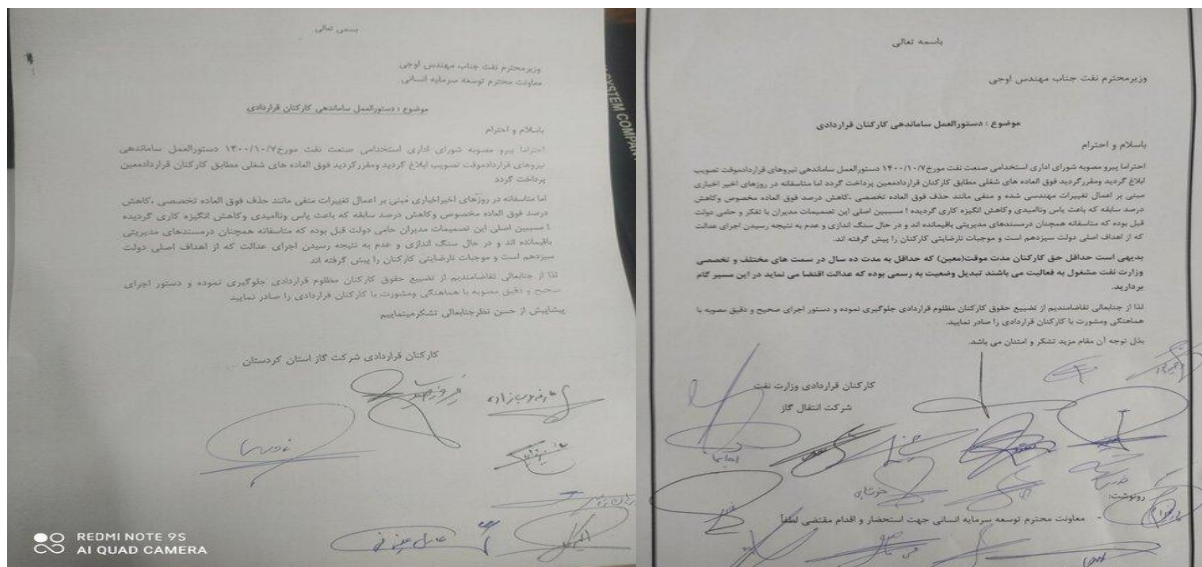 بسمی تعالی
وزیر محترم نفت جناب مهندس اوجی
معاونت محترم توسعه سرمایه انسانی
موضوع : دستورالعمل ساماندهی کارکنان قراردادی
باسلام و احترام
احتراما پیرو مصوبه شورای اداری استخدامی صنعت نفت مورخ ۱۴۰۰/۱۰/۷ دستورالعمل ساماندهی
نیروهای قراردادموقت تصویب ابلاغ گردید ومقرر گردید فوق العاده های شغلی مطابق کارکنان قراردادمعین
پرداخت گردد
اما متاسفانه در روزهای اخیراخباری مبنی بر اعمال تغییرات منفی مانند حذف فوق العاده تخصصی ،کاهش
درصد فوق العاده مخصوص وکاهش درصد سابقه که باعث یاس وناامیدی وکاهش انگیزه کاری گردیده
! مسببین اصلی این تصمیمات مدیران حامی دولت قبل بوده که متاسفانه همچنان درمسندهای مدیریتی
باقیمانده اند و در حال سنگ اندازی و عدم به نتیجه رسیدن اجرای عدالت که از اهداف اصلی دولت
سیزدهم است و موجبات نارضایتی کارکنان را پیش گرفته اند
لذا از جنابعالی تقاضامندیم از تضییع حقوق کارکنان مظلوم قراردادی جلوگیری نموده و دستور اجرای
صحیح و دقیق مصوبه با هماهنگی ومشورت با کارکنان قراردادی را صادر نمایید
پیشاپیش از حسن نظرجنابعالی تشکرمینماییم
کارکنان قراردادی شرکت گاز استان کردستان
SYSTEM COMPAN
REDMI NOTE 9S
AI QUAD CAMERA
باسمه تعالی
وزیر محترم نفت جناب مهندس اوجی
موضوع : دستورالعمل ساماندهی کارکنان قراردادی
باسلام و احترام
احتراما پیرو مصوبه شورای اداری استخدامی صنعت نفت مورخ ۱۴۰۰/۱۰/۷ دستورالعمل ساماندهی نیروهای قراردادموقت تصویب
ابلاغ گردید ومقرر گردید فوق العاده های شغلی مطابق کارکنان قراردادمعین پرداخت گردد اما متاسفانه در روزهای اخیر اخباری
مبنی بر اعمال تغییرات مهندسی شده و منفی مانند حذف فوق العاده تخصصی ،کاهش درصد فوق العاده مخصوص وکاهش
درصد سابقه که باعث یاس وناامیدی وکاهش انگیزه کاری گردیده ! مسببین اصلی این تصمیمات مدیران با تفکر و حامی دولت
قبل بوده که متاسفانه همچنان درمسندهای مدیریتی باقیمانده اند و در حال سنگ اندازی و عدم به نتیجه رسیدن اجرای عدالت
که از اهداف اصلی دولت سیزدهم است و موجبات نارضایتی کارکنان را پیش گرفته اند.
بدیهی است حداقل حق کارکنان مدت موقت(معین) که حداقل به مدت ده سال در سمت های مختلف و تخصصی
وزارت نفت مشغول به فعالیت می باشند تبدیل وضعیت به رسمی بوده که عدالت اقتضا می نماید در این مسیر گام
بردارید.
لذا از جنابعالی تقاضامندیم از تضییع حقوق کارکنان مظلوم قراردادی جلوگیری نموده و دستور اجرای صحیح و دقیق مصوبه با
هماهنگی ومشورت با کارکنان قراردادی را صادر نمایید.
بذل توجه آن مقام مزید تشکر و امتنان می باشد.
کارکنان قراردادی وزارت نفت
شرکت انتقال گاز
رونوشت:
- معاونت محترم توسعه سرمایه انسانی جهت استحضار و اقدام مقتضی لطفاً